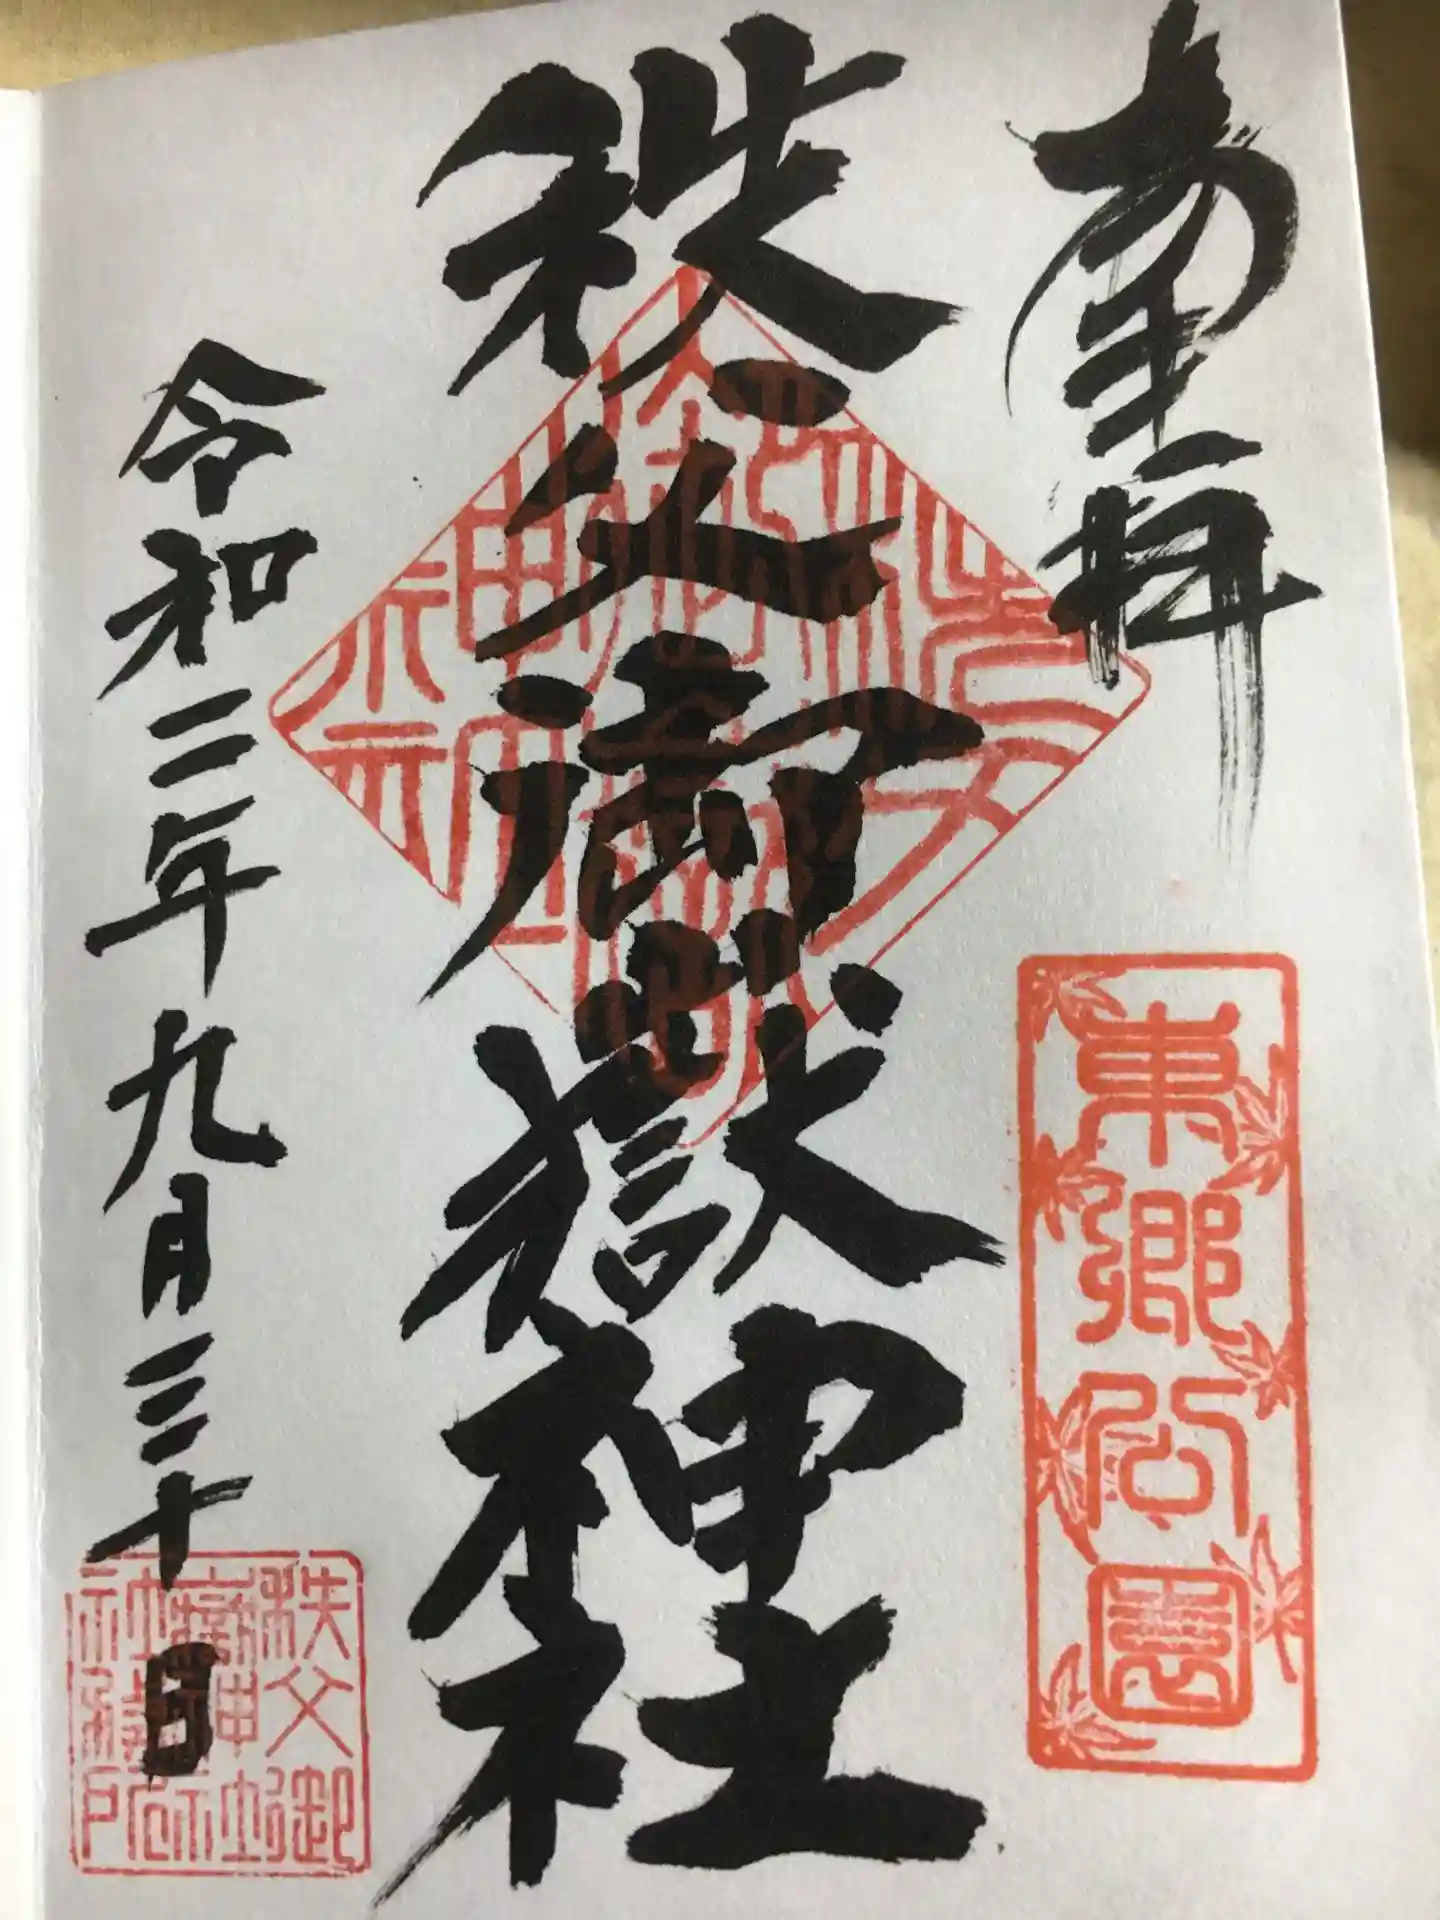 奉拝
東郷公園
秩父御嶽神社
令和二年九月三十日
秩父御
嶽神社
社務所